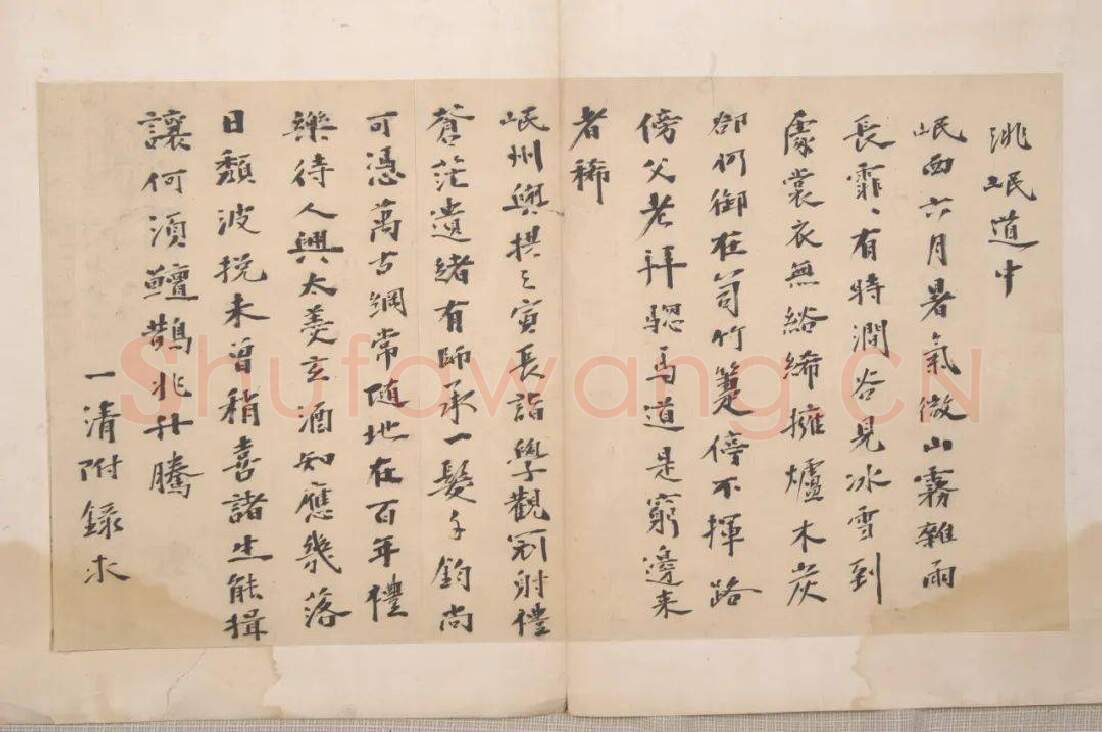 洮岷道中
岷西六月暑氣微山霧雜雨
長霏〻有時澗谷見冰雪到
處裳衣無綌絺擁爐木炭
卻何御在笥竹箑不揮路
傍父老拜驄馬道是窮邊來
者稀
岷州與拱之寅長詣學觀冠射禮
蒼茫遺緒有師承一髮千鈞尚
可憑萬古綱常隨地在百年禮
樂待人興太羹玄酒知應幾落
日頹波挽未曾稍喜諸生能揖
讓何須鱣鵲兆升騰
一清附錄求
Shufawang.CN